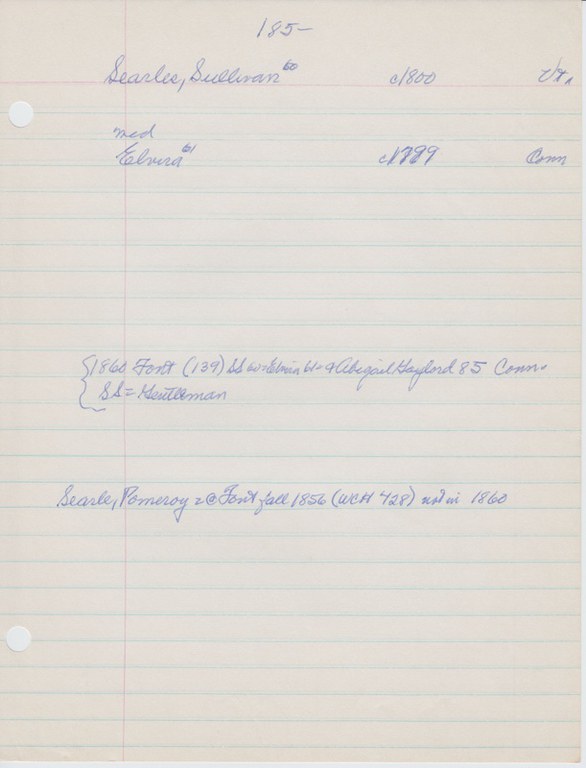 185-
Searles, Sullivan 60 c1800 Vt.
med
Elvira 61 c1799 Conn
1860 Font (139) SS 60 = Elvira 61 = & Abigail Gaylord 85 Conn.
SS = Gentleman
Searle, Pomeroy = @ Font fall 1856 (WCH 428) not in 1860